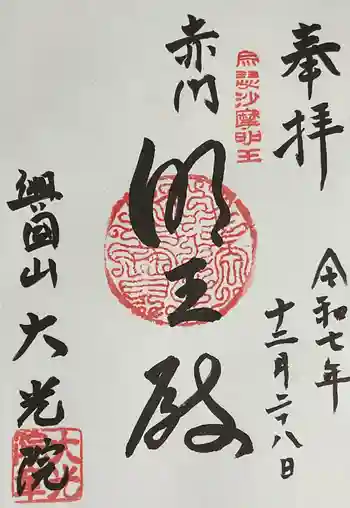 奉拝
令和七年
十二月二十八日
烏瑟沙摩明王
赤門
明王殿
興国山大光院